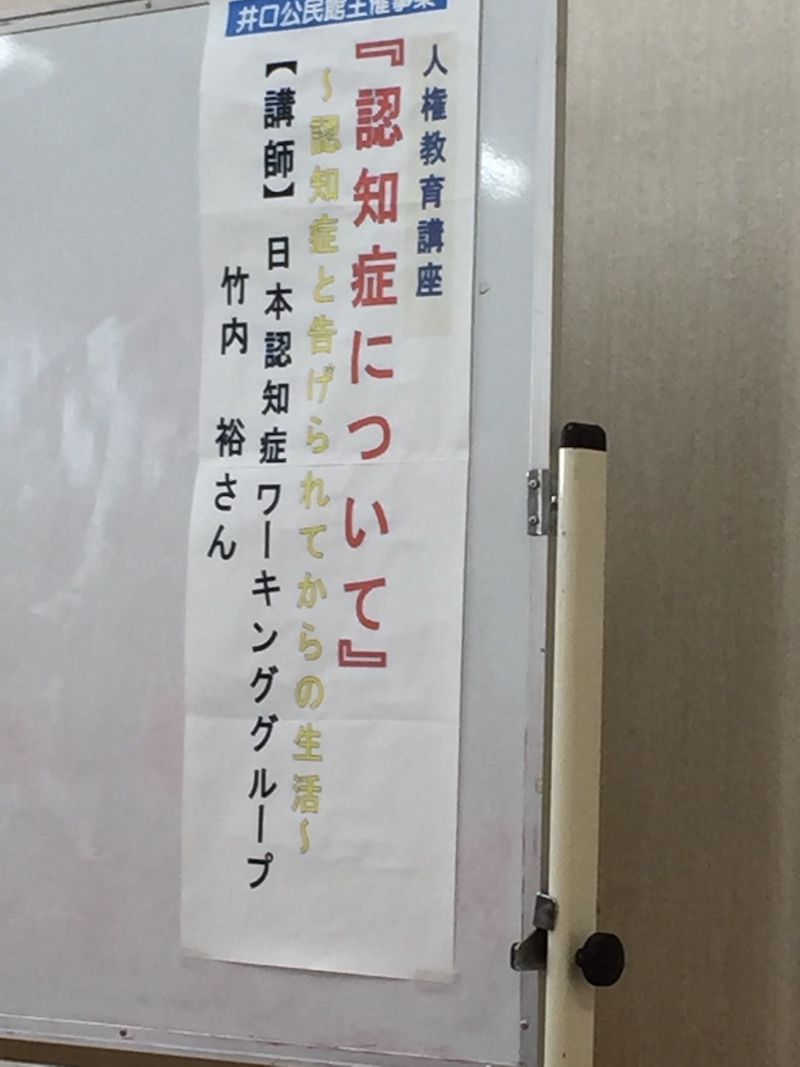 井口公民館主催事業
人権教育講座
『認知症について』
~認知症と告げられてからの生活~
【講師】 日本認知症ワーキンググループ
竹内 裕さん